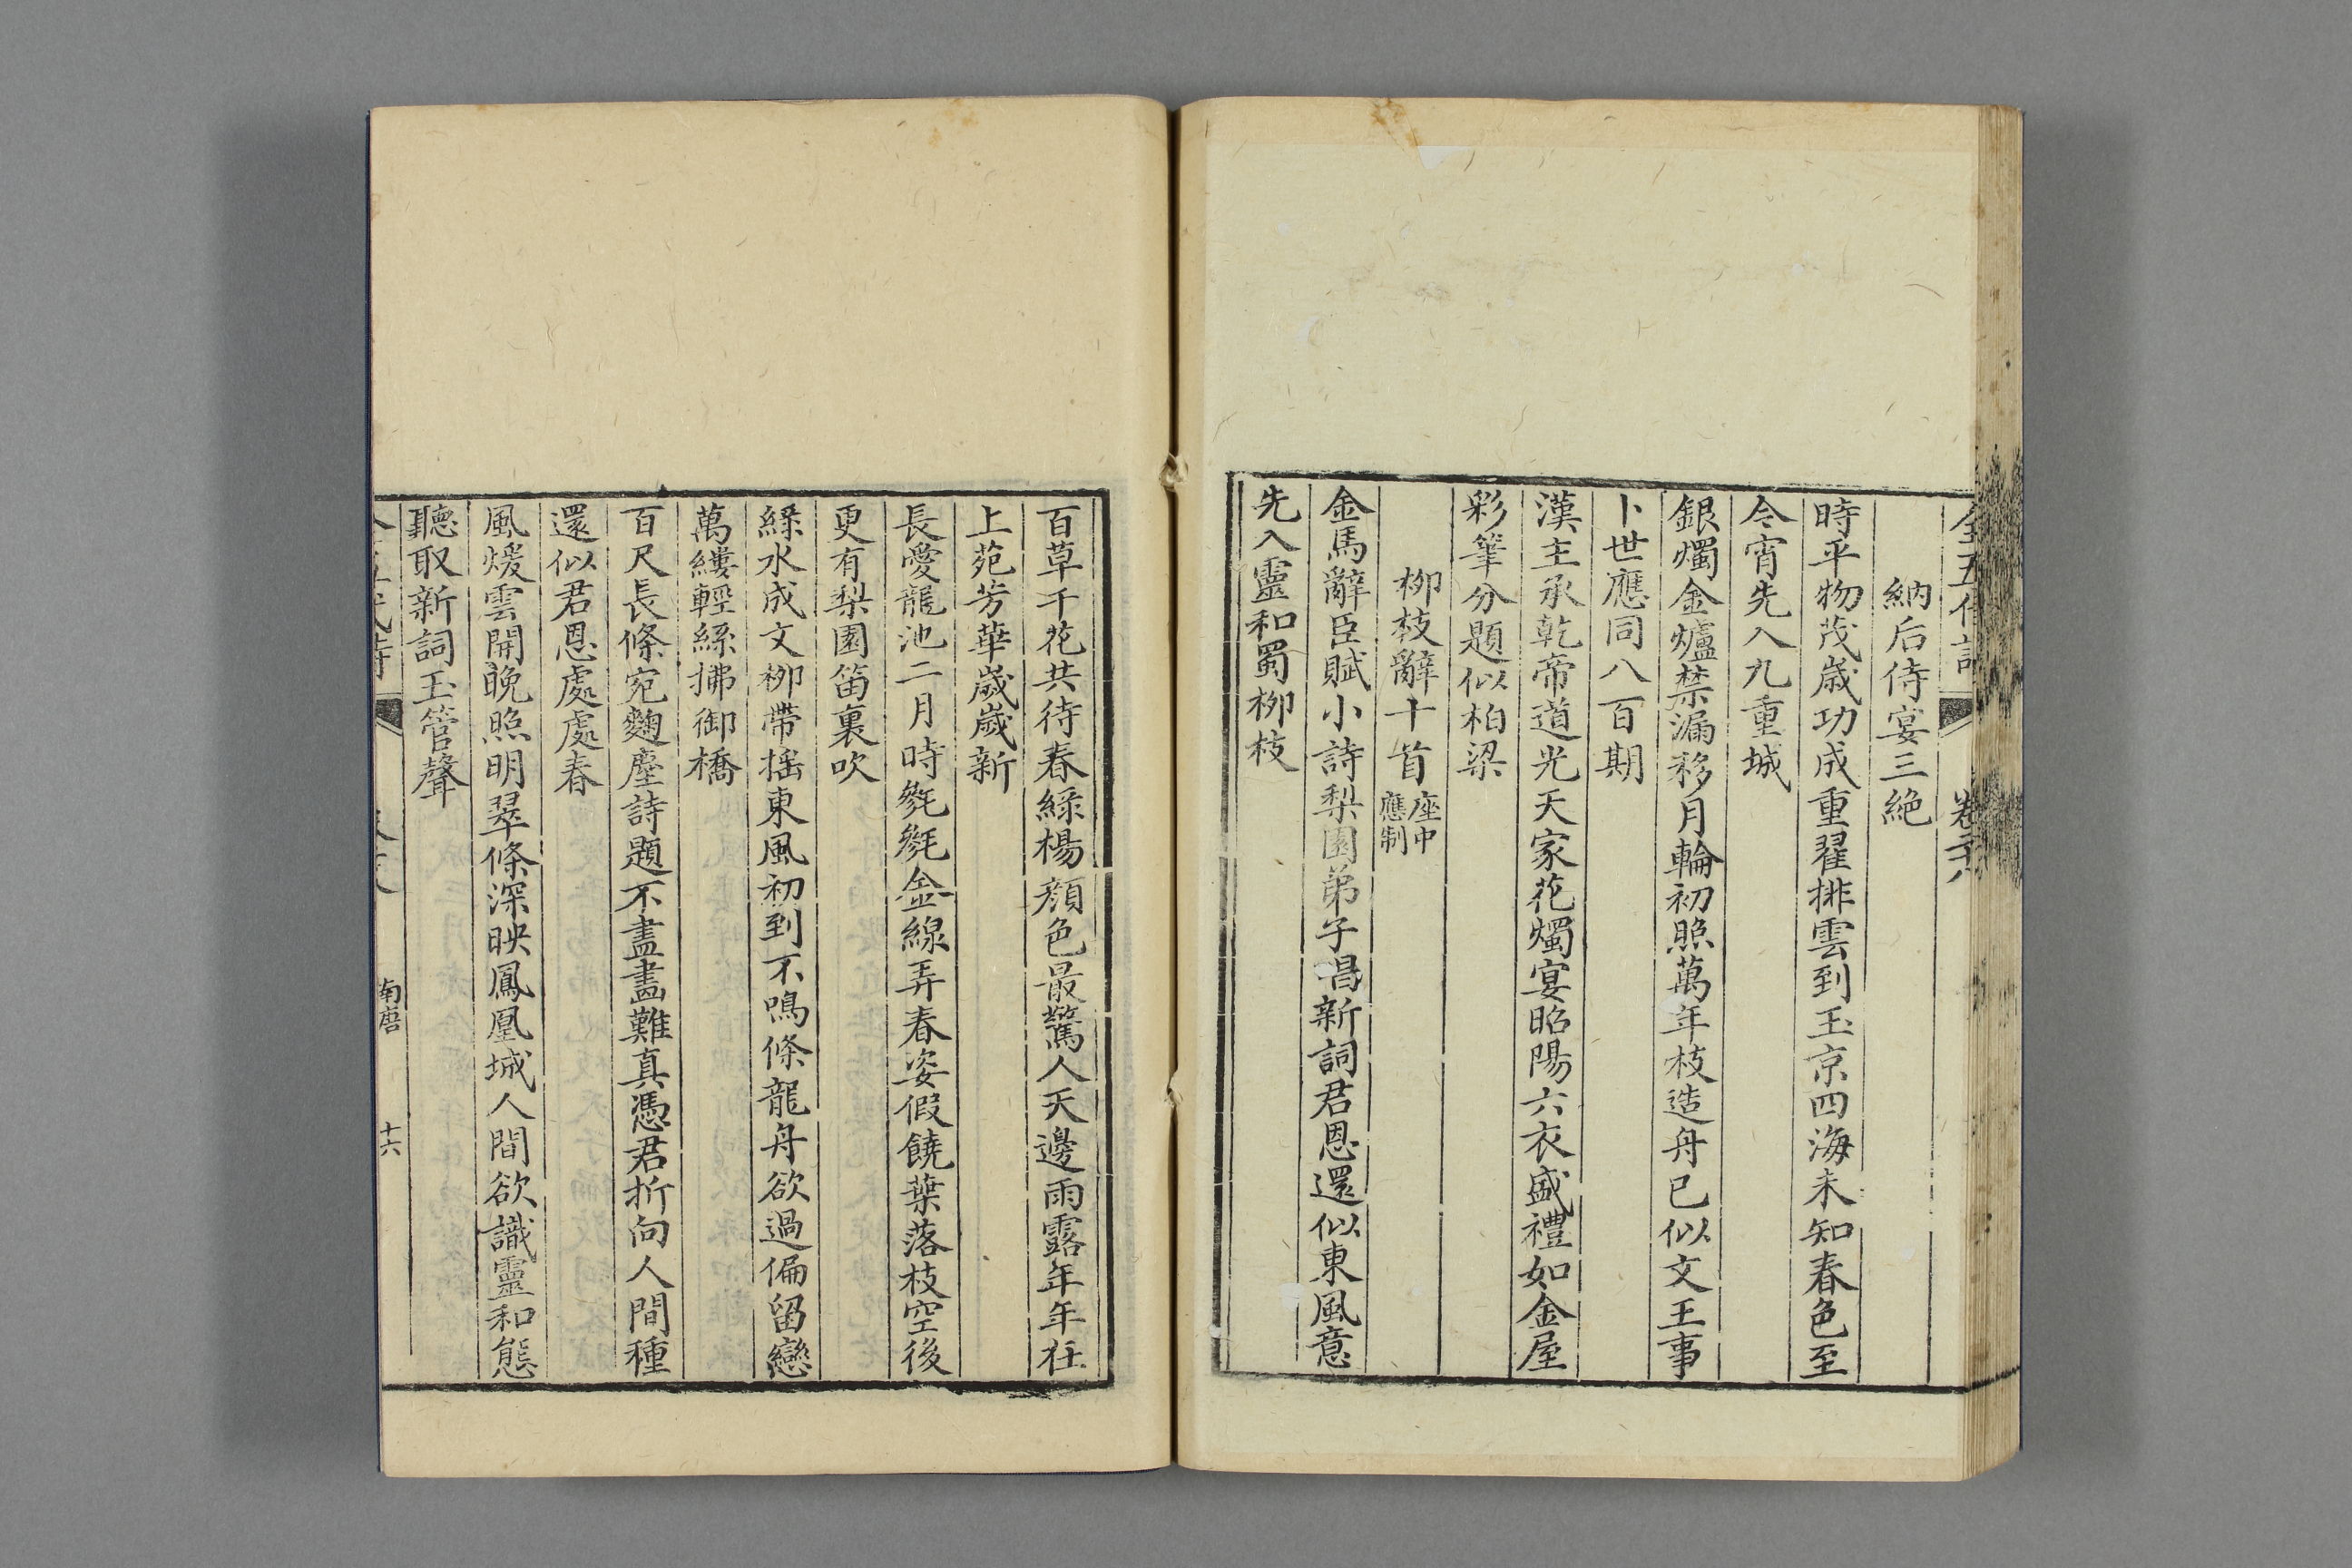 全五代詩 卷二十八
納后侍宴三絶
時平物茂歲功成重翟排雲到玉京四海未知春色至
今宵先入九重城
銀燭金爐禁漏移月輪初照萬年枝造舟已似文王事
卜世應同八百期
漢主承乾帝道光天家花燭宴昭陽六衣盛禮如金屋
彩筆分題似柏梁
柳枝辭十首座中應制
金馬辭臣賦小詩梨園弟子唱新詞君恩還似東風意
先入靈和蜀柳枝
百草千花共待春綠楊顔色最驚人天邊雨露年年在
上苑芳華歲歲新
長愛龍池二月時毿毿金線弄春姿假饒葉落枝空後
更有梨園笛裏吹
綠水成文柳帶搖東風初到不鳴條龍舟欲過偏留戀
萬縷輕絲拂御橋
百尺長條宛麴塵詩題不盡畫難真憑君折向人間種
還似君恩處處春
風煖雲開晚照明翠條深映鳳凰城人間欲識靈和態
聽取新詞玉管聲
南唐 十六